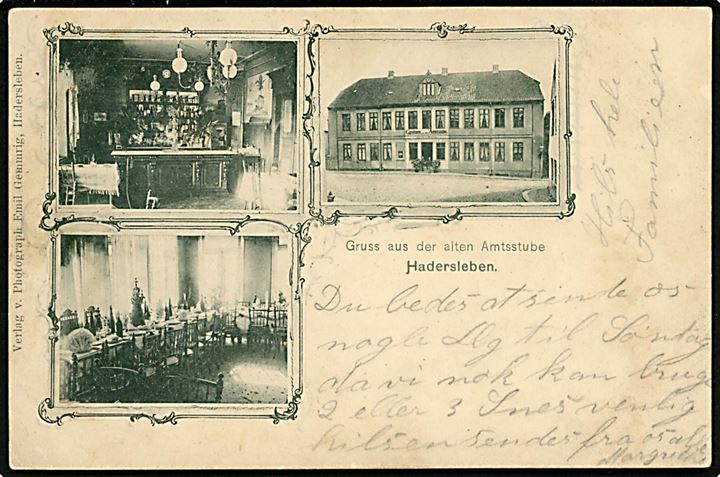 Verlag v. Photograph Emil Gemmrig, Hadersleben.
Gruss aus der alten Amtsstube
Hadersleben.
Du bedes at sende os
nogle Æg til Söndag
da vi nok kan bruge
2 eller 3 Snes venlig
hilsen sendes fra os alle
Margrethe
Hils hele
Familien